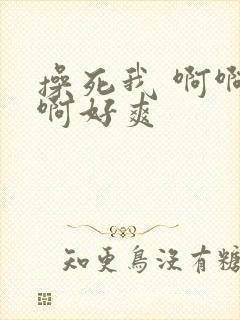 操死我 啊啊
啊好爽
知更鸟没有糖